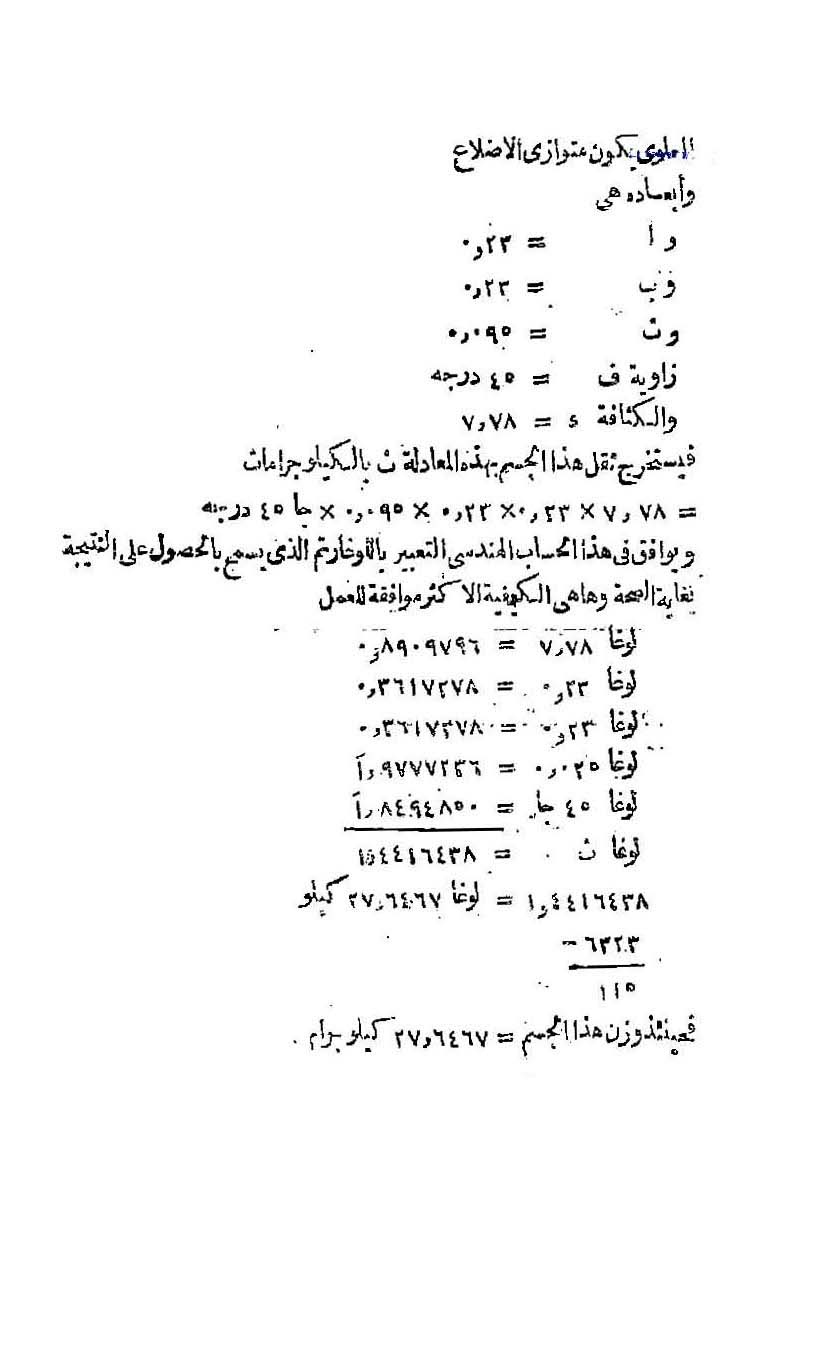 العلوى يكون متوازى الاضلاع
وأبعاده هى
و ا = ٠,٢٣
و ب = ٠,٢٣
و ث = ٠,٠٩٥
زاوية ف = ٤٥ درجه
والكثافة ء = ٧,٧٨
فيستخرج ثقل هذا الجسم بهذه المعادلة ث بالكيلوجرامات
= ٧,٧٨ × ٠,٢٣ × ٠,٢٣ × ٠,٠٩٥ × جا ٤٥ درجه
ويوافق فى هذا الحساب الهندسى التعبير باللوغارتم الذى يسمح بالحصول على النتيجة
بغاية الصحة وهاهى الكيفية الاكثر موافقة للعمل
لوغا ٧,٧٨ = ٠,٨٩٠٩٧٩٦
لوغا ٠,٢٣ = ٠,٣٦١٧٢٧٨
لوغا ٠,٢٣ = ٠,٣٦١٧٢٧٨
لوغا ٠,٠٢٥ = ١,٩٧٧٧٢٣٦
لوغا ٤٥ جا = ١,٨٤٩٤٨٥٠
لوغا ث = ١,٤٤١٦٤٣٨
١,٤٤١٦٤٣٨ = لوغا ٢٧,٦٤٦٧ كيلو
٦٣٢٣ -
١١٥
فحينئذ وزن هذا الجسم = ٢٧,٦٤٦٧ كيلو جرام .